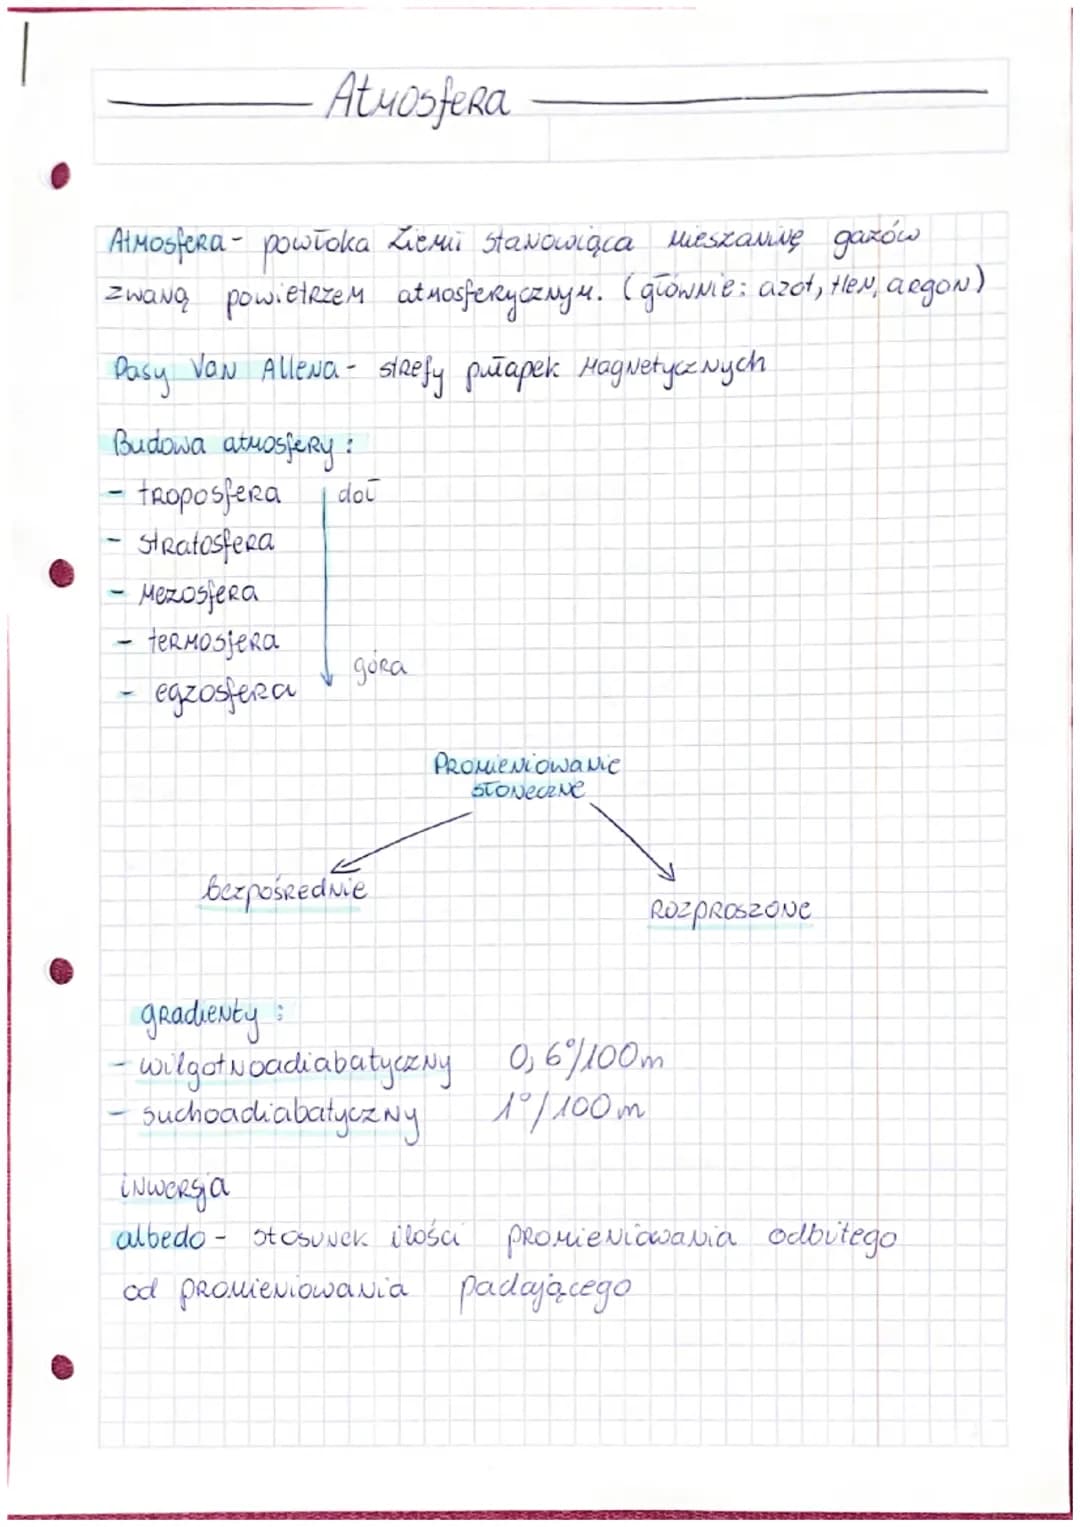 Atmosfera
Atmosfera - powłoka Ziemi stanowiąca mieszaninę gazów
zwaną powietrzem atmosferycznym. (głównie: azot, tlen, argon)
Pasy Van Allena - strefy pułapek magnetycznych
Budowa atmosfery:
- troposfera dół
- stratosfera
- mezosfera
- termosfera
góra
- egzosfera
Promieniowanie
słoneczne
bezpośrednie
rozproszone
gradienty:
- wilgotnoadiabatyczny 0,6°/100m
- suchoadiabatyczny 1°/100m
inwersja
albedo - stosunek ilości promieniowania odbitego
od promieniowania padającego